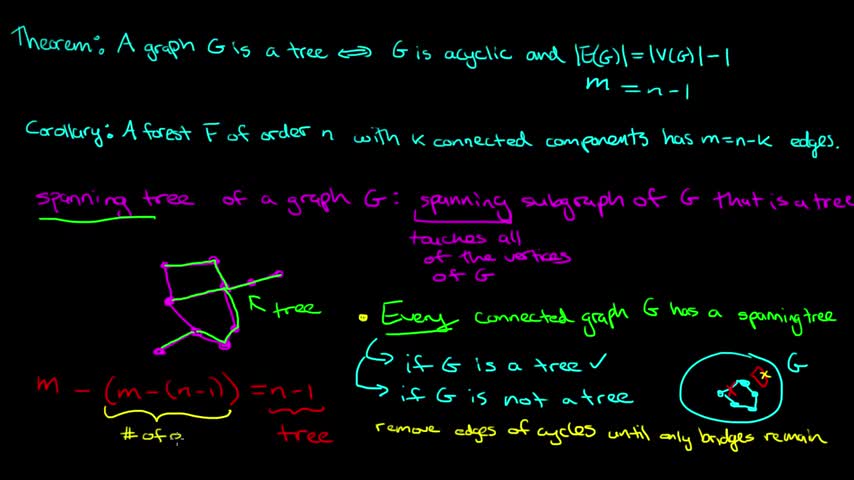 Theorem: A graph G is a tree ⟺ G is acyclic and |E(G)|=|V(G)|-1
m = n-1
Corollary: A forest F of order n with k connected components has m=n-k edges.
spanning tree of a graph G: spanning subgraph of G that is a tree
touches all
of the vertices
of G
tree
• Every connected graph G has a spanning tree
if G is a tree ✓
G
x
x
if G is not a tree
m - (m-(n-1)) = n-1
# of
tree
remove edges of cycles until only bridges remain